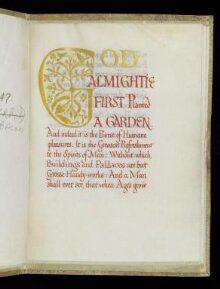 GOD
ALMIGHTIE
FIRST Planted
A GARDEN.
And indeed it is the Purest of Humane
pleasures. It is the Greatest Refreshment
to the Spirits of Man: Without which,
Buildings and Pallaces are but
Grosse Handy-works: And a Man
shall ever see, that when Ages grow